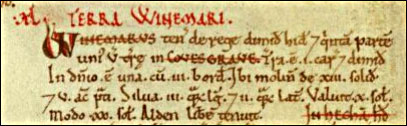 TERRA WINEMARI.
WINEMARUS ten' de rege dimid hid' 7 quinta parte
uni' v' træ in COVESGRAVE. Tra. ē. i. car' 7 dimid
In dnio. ē una. cū. iii. bord. Ibi molin' de xiii. solid
7 v. ac' p'ti. Silua. iii. q̃rz lg̃. 7 ii. q̃rz lat'. Valuit x. sol'.
Modo xx. sol'. Alden libe tenuit.
In hecha hd